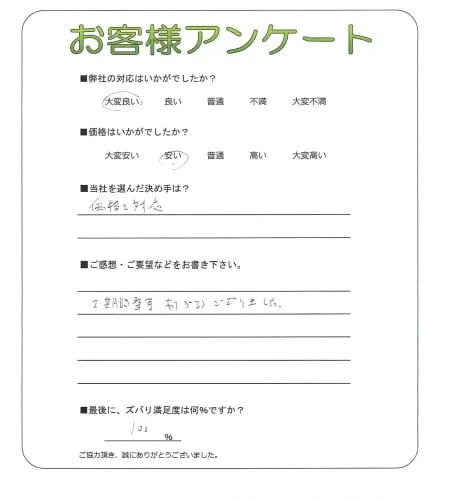 お客様アンケート
■弊社の対応はいかがでしたか？
大変良い 良い 普通 不満 大変不満
■価格はいかがでしたか？
大変安い 安い 普通 高い 大変高い
■当社を選んだ決め手は？
価格と対応
■ご感想・ご要望などをお書き下さい。
ありがとうございました。
■最後に、ズバリ満足度は何%ですか？
100 %
ご協力頂き、誠にありがとうございました。